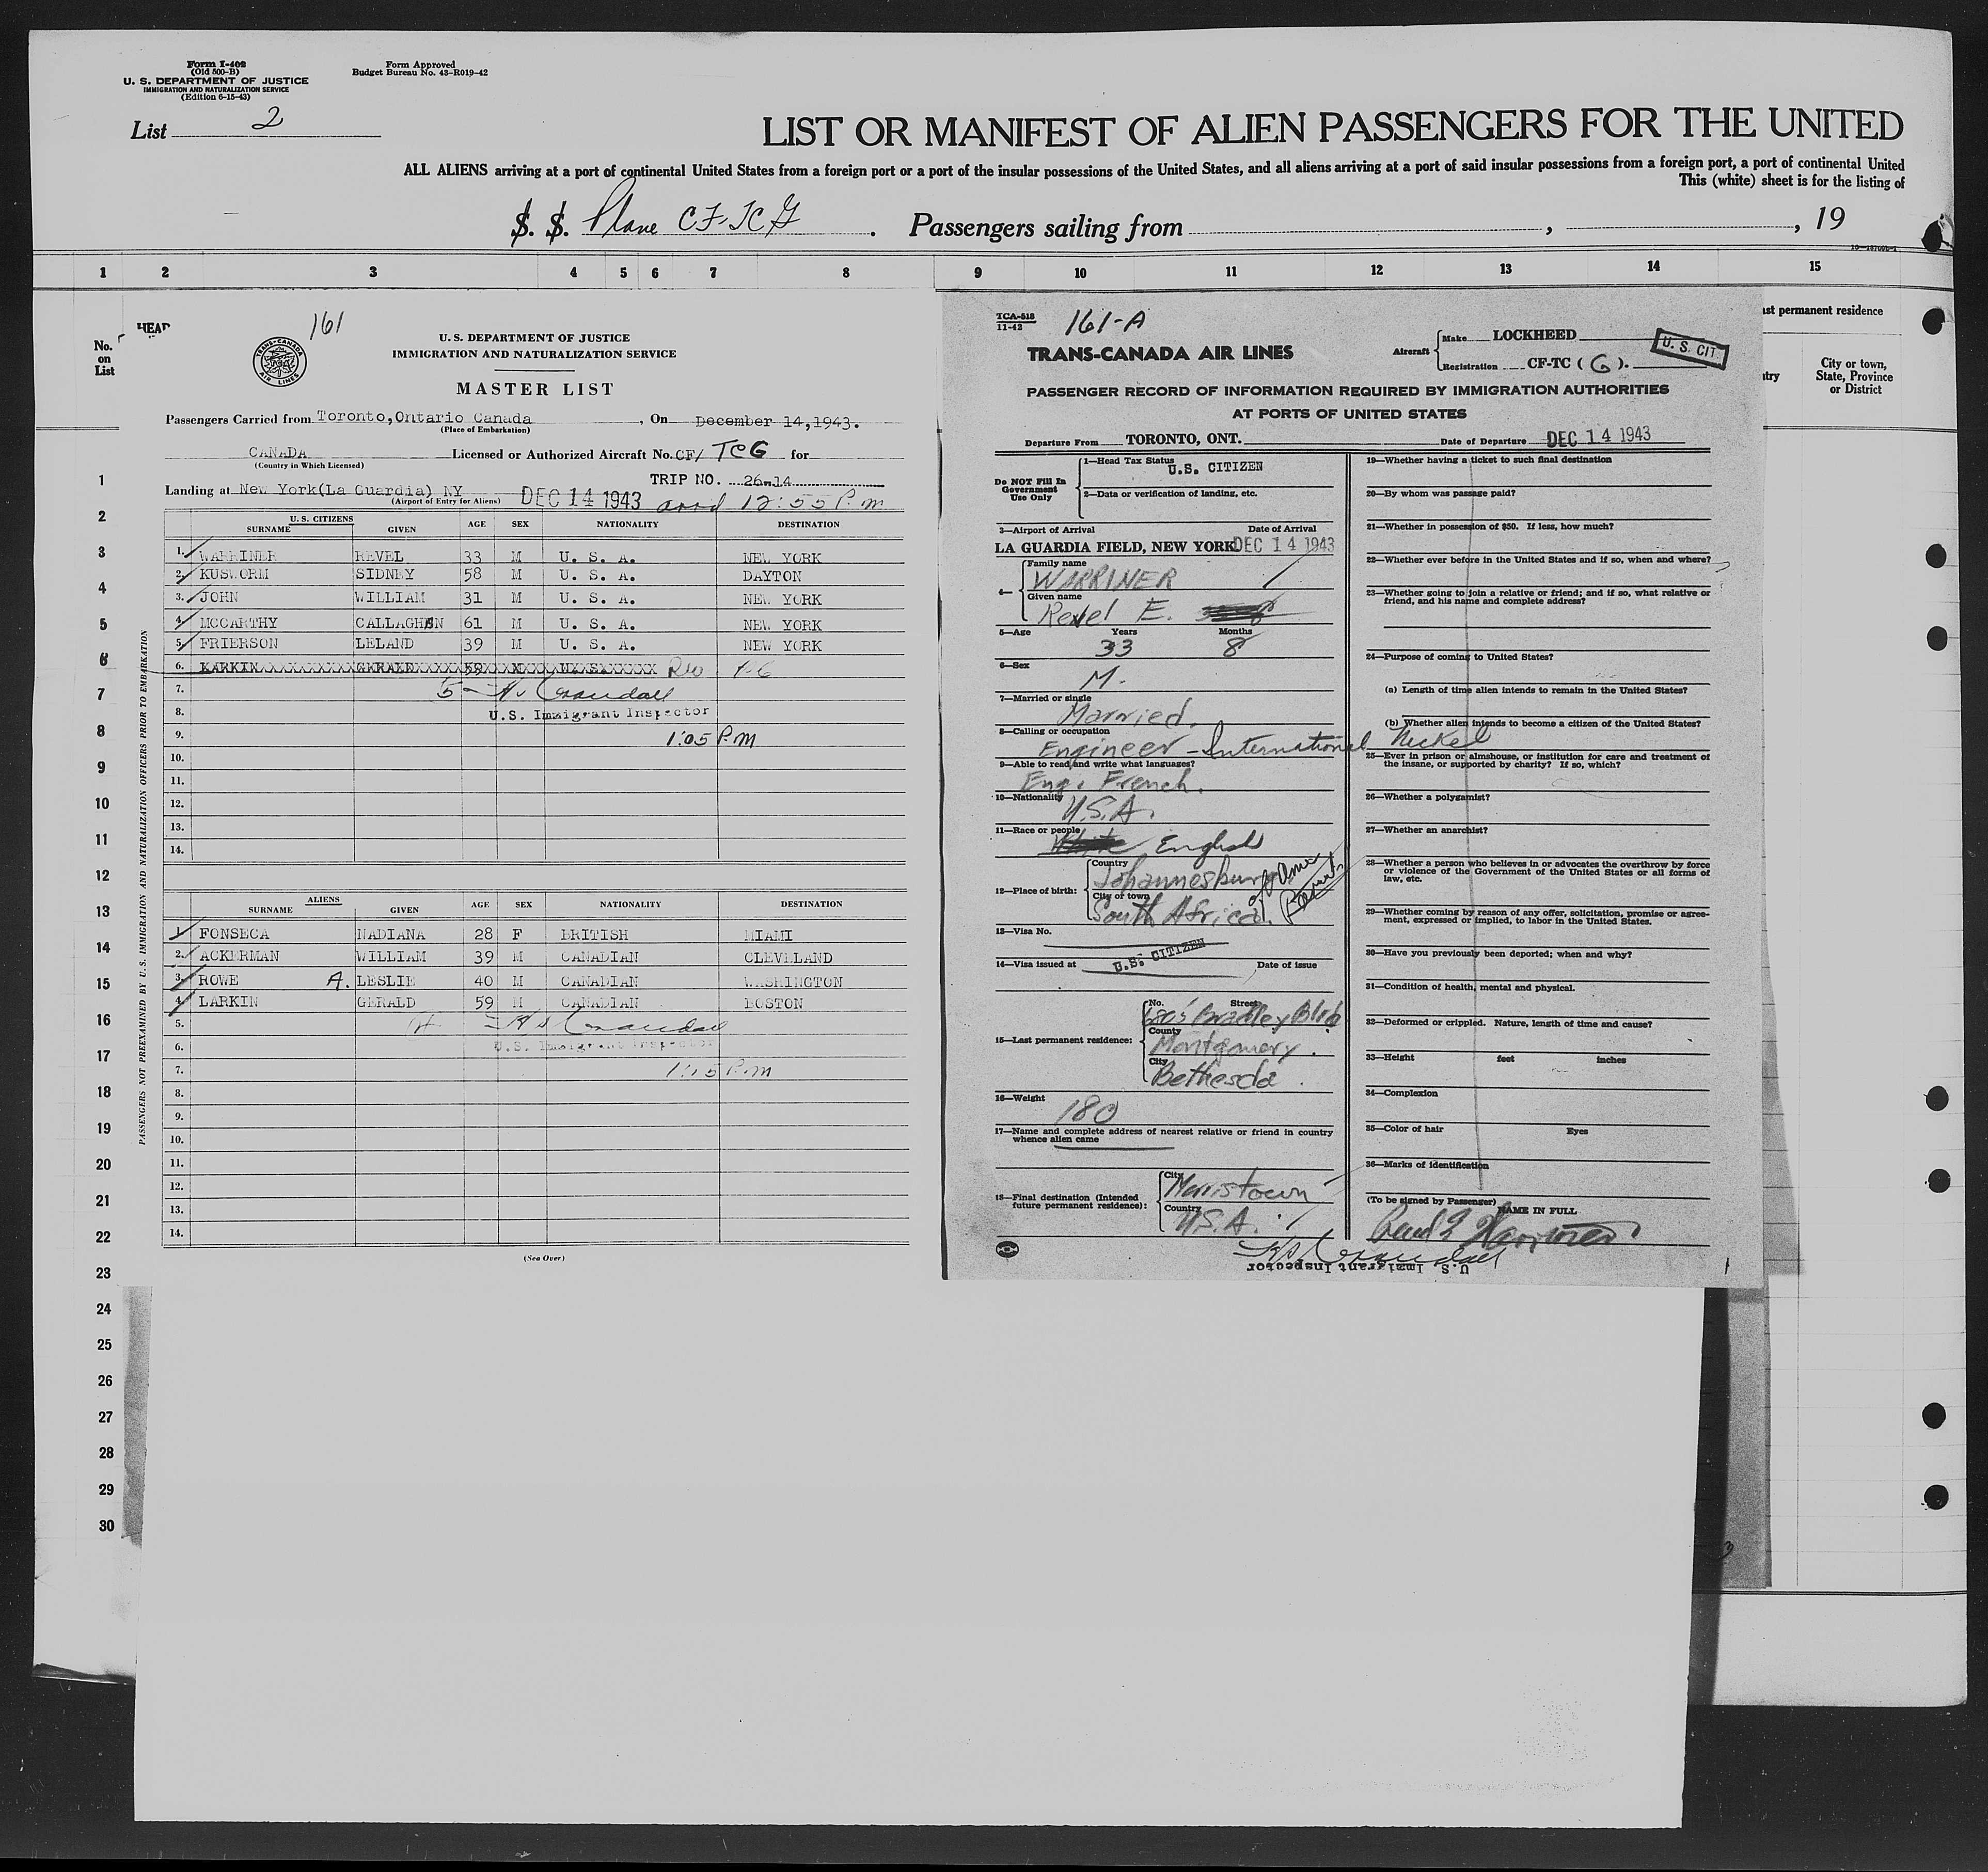 Form I-402
(Old 500-B)
U. S. DEPARTMENT OF JUSTICE
IMMIGRATION AND NATURALIZATION SERVICE
(Edition 6-15-43)
Form Approved
Budget Bureau No. 43-R019-42
List 2
LIST OR MANIFEST OF ALIEN PASSENGERS FOR THE UNITED
ALL ALIENS arriving at a port of continental United States from a foreign port or a port of the insular possessions of the United States, and all aliens arriving at a port of said insular possessions from a foreign port, a port of continental United
This (white) sheet is for the listing of
S. S. Plane CF-TCG . Passengers sailing from , , 19
1 2 3 4 5 6 7 8 9 10 11 12 13 14 15
No. on List
HEAD
ast permanent residence
ntry
City or town, State, Province or District
1
2
3
4
5
6
7
8
9
10
11
12
13
14
15
16
17
18
19
20
21
22
23
24
25
26
27
28
29
30
PASSENGERS NOT PREEXAMINED BY U.S. IMMIGRATION AND NATURALIZATION OFFICERS PRIOR TO EMBARKATION
161
TRANS-CANADA AIR LINES
U. S. DEPARTMENT OF JUSTICE
IMMIGRATION AND NATURALIZATION SERVICE
MASTER LIST
Passengers Carried from Toronto,Ontario Canada , On December 14,1943.
(Place of Embarkation)
CANADA Licensed or Authorized Aircraft No. CF/ TCG for
(Country in Which Licensed)
TRIP NO. 26-14
Landing at New York(La Guardia) NY DEC 14 1943 arrd 12:55 P.m
(Airport of Entry for Aliens)
U. S. CITIZENS
SURNAME GIVEN AGE SEX NATIONALITY DESTINATION
1. WARRINER REVEL 33 M U. S. A. NEW YORK
2. KUSWORM SIDNEY 58 M U. S. A. DAYTON
3. JOHN WILLIAM 31 M U. S. A. NEW YORK
4. MCCARTHY CALLAGHAN 61 M U. S. A. NEW YORK
5. FRIERSON LELAND 39 M U. S. A. NEW YORK
6. KARKINXXXXXXXXXXGERALDXXXXX59XXXMXXXXU.S.XXXXXX
7. 5 - Crandall
8. U.S. Immigrant Inspector
9. 1:05 P.M
10.
11.
12.
13.
14.
ALIENS
SURNAME GIVEN AGE SEX NATIONALITY DESTINATION
1. FONSECA NADIANA 28 F BRITISH MIAMI
2. ACKERMAN WILLIAM 39 M CANADIAN CLEVELAND
3. ROWE A. LESLIE 40 M CANADIAN WASHINGTON
4. LARKIN GERALD 59 M CANADIAN BOSTON
5. 4 - Crandall
6. U.S. Immigrant Inspector
7. 1:15 P.M
8.
9.
10.
11.
12.
13.
14.
(See Over)
TCA-518
11-42
161-A
TRANS-CANADA AIR LINES
Aircraft
Make LOCKHEED
Registration CF-TC ( G ).
U. S. CIT.
PASSENGER RECORD OF INFORMATION REQUIRED BY IMMIGRATION AUTHORITIES
AT PORTS OF UNITED STATES
Departure From TORONTO, ONT. Date of Departure DEC 14 1943
Do NOT Fill In Government Use Only
1—Head Tax Status
U.S. CITIZEN
2—Data or verification of landing, etc.
3—Airport of Arrival Date of Arrival
LA GUARDIA FIELD, NEW YORK DEC 14 1943
4—
Family name
WARRINER
Given name
Revel E.
5—Age Years Months
33 8
6—Sex
M.
7—Married or single
Married.
8—Calling or occupation
Engineer - International Nickel
9—Able to read and write what languages?
Eng. French.
10—Nationality
U.S.A.
11—Race or people
White English
12—Place of birth:
Country
Johannesburg
City or town
South Africa.
of Amer Parents
13—Visa No.
U.S. CITIZEN
14—Visa issued at Date of issue
15—Last permanent residence:
No. Street
6805 Bradley Blvd
County
Montgomery.
City
Bethesda.
16—Weight
180
17—Name and complete address of nearest relative or friend in country whence alien came
18—Final destination (Intended future permanent residence):
City
Morristown
Country
U.S.A.
19—Whether having a ticket to such final destination
20—By whom was passage paid?
21—Whether in possession of $50. If less, how much?
22—Whether ever before in the United States and if so, when and where?
23—Whether going to join a relative or friend; and if so, what relative or friend, and his name and complete address?
24—Purpose of coming to United States?
(a) Length of time alien intends to remain in the United States?
(b) Whether alien intends to become a citizen of the United States?
25—Ever in prison or almshouse, or institution for care and treatment of the insane, or supported by charity? If so, which?
26—Whether a polygamist?
27—Whether an anarchist?
28—Whether a person who believes in or advocates the overthrow by force or violence of the Government of the United States or all forms of law, etc.
29—Whether coming by reason of any offer, solicitation, promise or agreement, expressed or implied, to labor in the United States.
30—Have you previously been deported; when and why?
31—Condition of health, mental and physical.
32—Deformed or crippled. Nature, length of time and cause?
33—Height feet inches
34—Complexion
35—Color of hair Eyes
36—Marks of identification
(To be signed by Passenger) NAME IN FULL
Revel E Warriner
Crandall
U.S. Immigrant Inspector